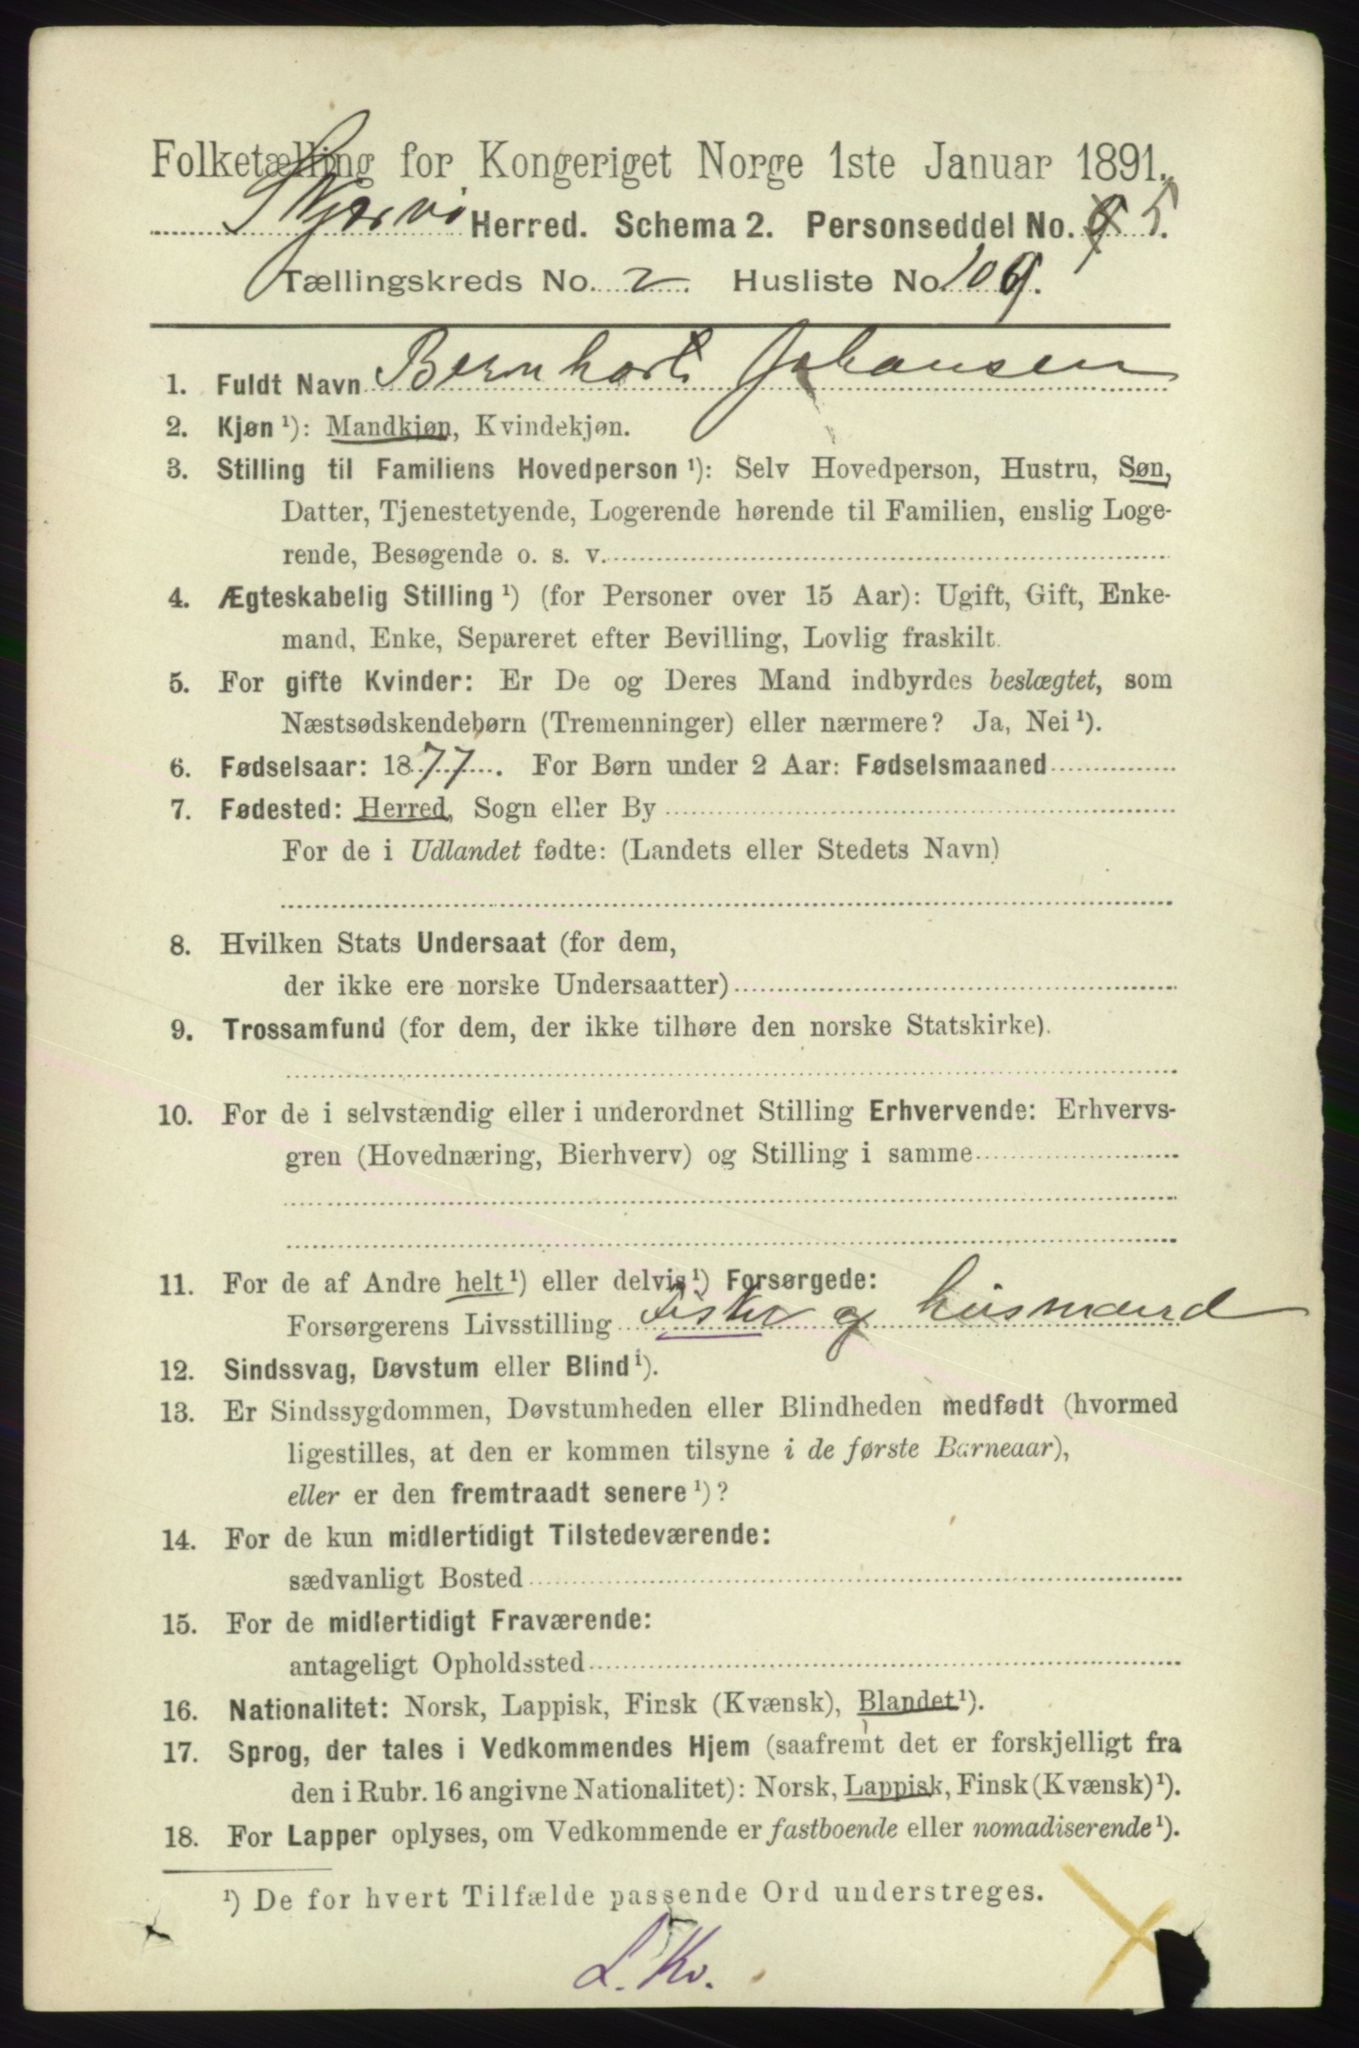 Folketælling for Kongeriget Norge 1ste Januar 1891.
Skjervö Herred. Schema 2. Personseddel No. 5.
Tællingskreds No. 2. Husliste No. 109.
1. Fuldt Navn Bernhart Johansen
2. Kjøn ¹): Mandkjøn, Kvindekjøn.
3. Stilling til Familiens Hovedperson ¹): Selv Hovedperson, Hustru, Søn,
Datter, Tjenestetyende, Logerende hørende til Familien, enslig Loge-
rende, Besøgende o. s. v.
4. Ægteskabelig Stilling ¹) (for Personer over 15 Aar): Ugift, Gift, Enke-
mand, Enke, Separeret efter Bevilling, Lovlig fraskilt.
5. For gifte Kvinder: Er De og Deres Mand indbyrdes beslægtet, som
Næstsødskendebørn (Tremenninger) eller nærmere? Ja, Nei ¹).
6. Fødselsaar: 1877. For Børn under 2 Aar: Fødselsmaaned
7. Fødested: Herred, Sogn eller By
For de i Udlandet fødte: (Landets eller Stedets Navn)
8. Hvilken Stats Undersaat (for dem,
der ikke ere norske Undersaatter)
9. Trossamfund (for dem, der ikke tilhøre den norske Statskirke).
10. For de i selvstændig eller i underordnet Stilling Erhvervende: Erhvervs-
gren (Hovednæring, Bierhverv) og Stilling i samme
11. For de af Andre helt ¹) eller delvis ¹) Forsørgede:
Forsørgerens Livsstilling Fisker og husmand
12. Sindssvag, Døvstum eller Blind ¹).
13. Er Sindssygdommen, Døvstumheden eller Blindheden medfødt (hvormed
ligestilles, at den er kommen tilsyne i de første Barneaar),
eller er den fremtraadt senere ¹)?
14. For de kun midlertidigt Tilstedeværende:
sædvanligt Bosted
15. For de midlertidigt Fraværende:
antageligt Opholdssted
16. Nationalitet: Norsk, Lappisk, Finsk (Kvænsk), Blandet ¹).
17. Sprog, der tales i Vedkommendes Hjem (saafremt det er forskjelligt fra
den i Rubr. 16 angivne Nationalitet): Norsk, Lappisk, Finsk (Kvænsk) ¹).
18. For Lapper oplyses, om Vedkommende er fastboende eller nomadiserende ¹).
¹) De for hvert Tilfælde passende Ord understreges.
L. Kv.